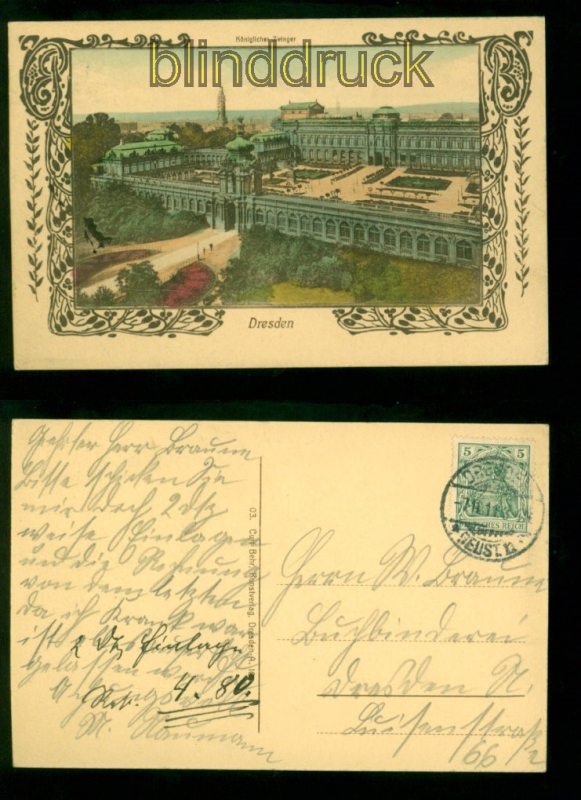 Königlicher Zwinger
blinddruck
Dresden
Geehrter Herr Braune
Bitte schicken Sie
mir doch 2 Dtz
weiße Einlagen
und die Rechnung
von dem letzten
da ich Krank war
ist
gelassen
M. Naumann
2 Dtz Einlagen
4.80.
03. Carl Behr, Kunstverlag, Dresden-A.
5
DEUTSCHES REICH
Herrn W. Braune
Buchbinderei
Dresden N.
Luisenstraße
66/2